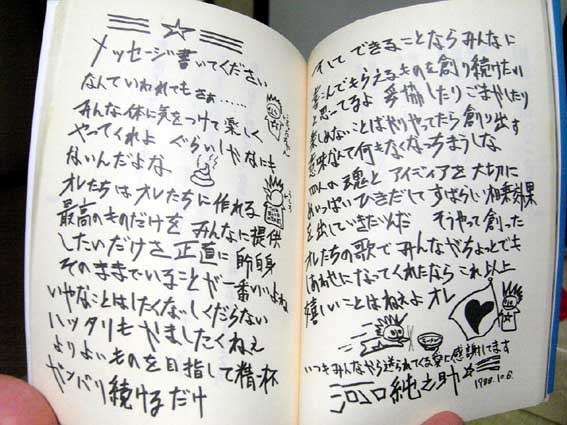 メッセージ書いてください
なんていわれてもさぁ……
みんな体に気をつけて楽しく
やってくれよ ぐらいしかなにも
ないんだよな
オレたちはオレたちに作れる
最高のものだけを みんなに提供
したいだけさ 正直に 自身
そのままでいることが一番いいよね
いやなことはしたくないしくだらない
ハッタリもやましたくねえ
よりよいものを目指して精一杯
ガンバリ続けるだけ
そして できることなら みんなに
喜こんでもらえるものを創り続けたい
と思ってるよ 妥協したりごまかしたり
楽しめないことばかりやってたら創り出す
意味なんて何もなくなっちまうしな
四人の魂とアイディアを大切に
めいっぱいひきだしてすばらしい相乗効果
を出していきたいんだ そうやって創った
オレたちの歌で みんながちょっとでも
しあわせになってくれたなら これ以上
嬉しいことはねぇよ オレ
いつもみんなから送られてくる愛に感謝してます
河口純之助
1988.10.6.